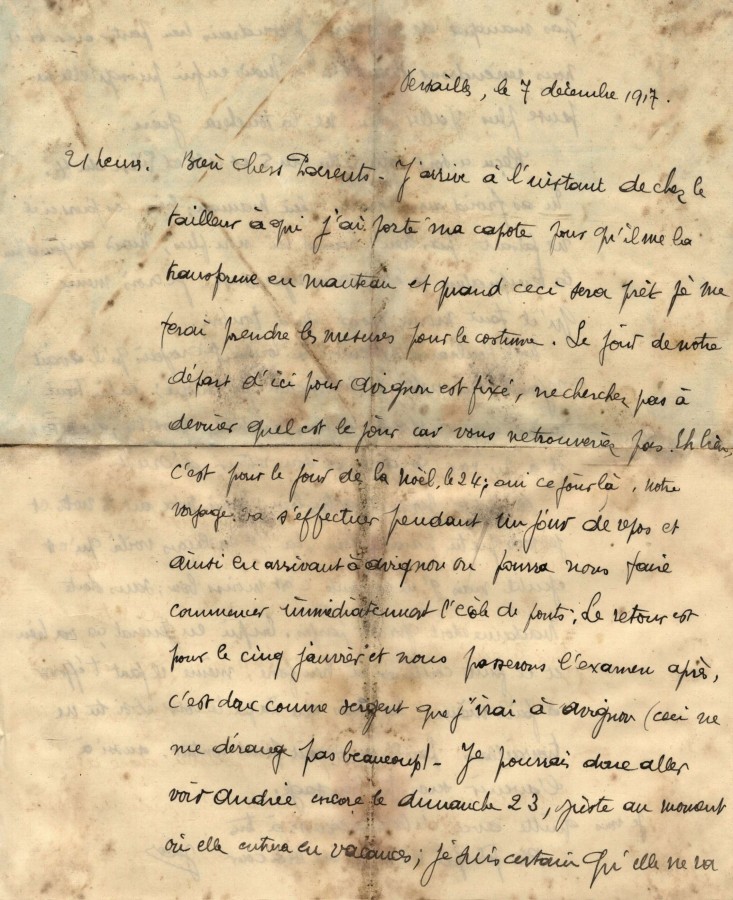 Versailles, le 7 décembre 1917.
21 heures. Bien chers Parents - J'arrive à l'instant de chez le
tailleur à qui j'ai porté ma capote pour qu'il me la
transforme en manteau et quand ceci sera prêt je me
ferai prendre les mesures pour le costume. Le jour de notre
départ d'ici pour Avignon est fixé, ne cherchez pas à
deviner quel est le jour car vous ne trouveriez pas. Eh bien,
c'est pour le jour de la Noël, le 24; oui ce jour là, notre
voyage va s'effectuer pendant un jour de repos et
ainsi en arrivant à Avignon on pourra nous faire
commencer immédiatement l'école de ponts; Le retour est
pour le cinq janvier et nous passerons l'examen après,
c'est donc comme sergent que j'irai à Avignon (ceci ne
me dérange pas beaucoup) - Je pourrais donc aller
voir Andrée encore le dimanche 23, juste au moment
où elle entrera en vacances; je suis certain qu'elle ne va